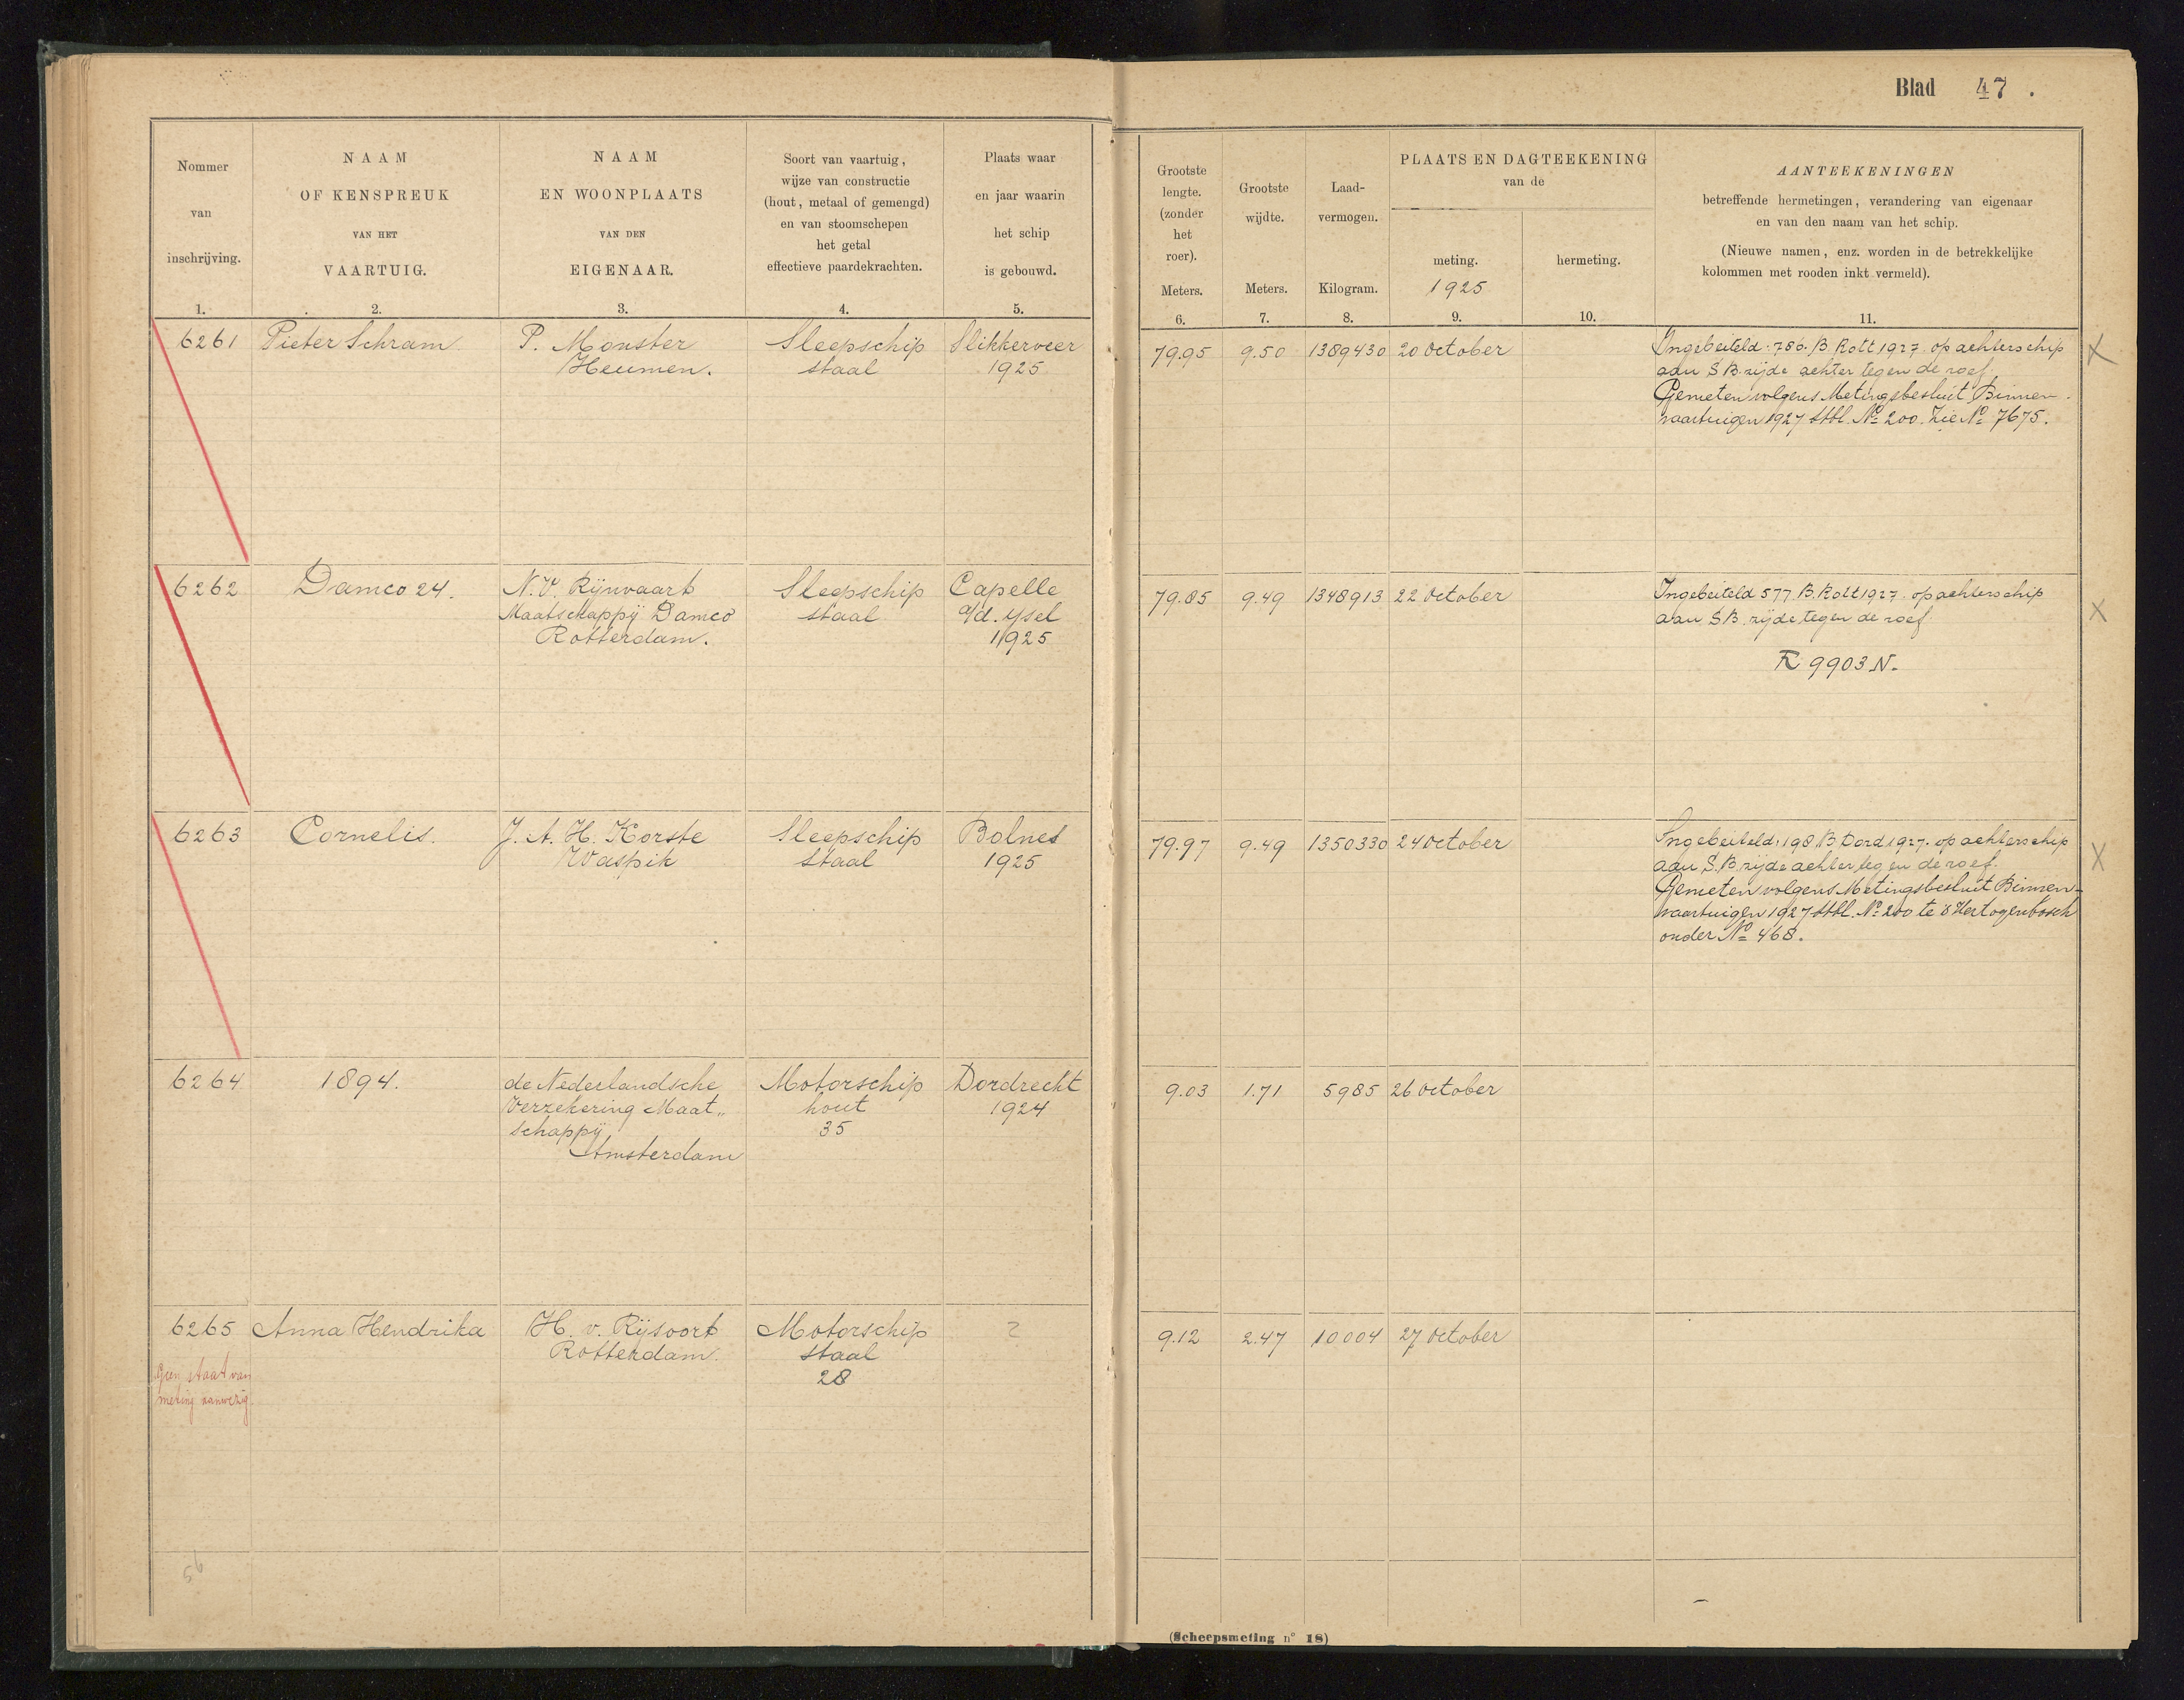 Blad 47.
Nommer
van
inschrijving.
1.
NAAM
OF KENSPREUK
VAN HET
VAARTUIG.
2.
NAAM
EN WOONPLAATS
VAN DEN
EIGENAAR.
3.
Soort van vaartuig,
wijze van constructie
(hout, metaal of gemengd)
en van stoomschepen
het getal
effectieve paardekrachten.
4.
Plaats waar
en jaar waarin
het schip
is gebouwd.
5.
Grootste
lengte.
(zonder
het
roer).
Meters.
6.
Grootste
wijdte.
Meters.
7.
Laad-
vermogen.
Kilogram.
8.
PLAATS EN DAGTEEKENING
van de
meting.
1925
9.
hermeting.
10.
AANTEEKENINGEN
betreffende hermetingen, verandering van eigenaar
en van den naam van het schip.
(Nieuwe namen, enz. worden in de betrekkelijke
kolommen met rooden inkt vermeld).
11.
6261
Pieter Schram
P. Monster
Heumen.
Sleepschip
staal
Slikkerveer
1925
79.95
9.50
1389430
20 October
Ingebeiteld. 786. B Rott 1927 op achterschip
aan S B. zijde achter tegen de roef.
Gemeten volgens Metingsbesluit Binnen-
vaartuigen 1927 Stbl. No 200. Zie No 7675.
X
6262
Damco 24.
N.V. Rijnvaart
Maatschappij Damco
Rotterdam.
Sleepschip
staal
Capelle
a/d. Ysel
1925
79.85
9.49
1348913
22 October
Ingebeiteld 577 B. Rott 1927. op achterschip
aan S B. zijde tegen de roef
R 9903 N.
X
6263
Cornelis.
J. A. H. Korste
Waspik
Sleepschip
staal
Bolnes
1925
79.97
9.49
1350330
24 October
Ingebeiteld. 198 B Dord 1927. op achterschip
aan S. B. zijde achter tegen de roef.
Gemeten volgens Metingsbesluit Binnen-
vaartuigen 1927 Stbl. No 200 te s Hertogenbosch
onder No 468.
X
6264
1894.
de Nederlandsche
Verzekering Maat„
schappij
Amsterdam
Motorschip
hout
35
Dordrecht
1924
9.03
1.71
5985
26 October
6265
Geen staat van
meting aanwezig.
Anna Hendrika
H. v. Rijsoort
Rotterdam.
Motorschip
staal
28
?
9.12
2.47
10004
27 October
56
(Scheepsmeting n° 18)